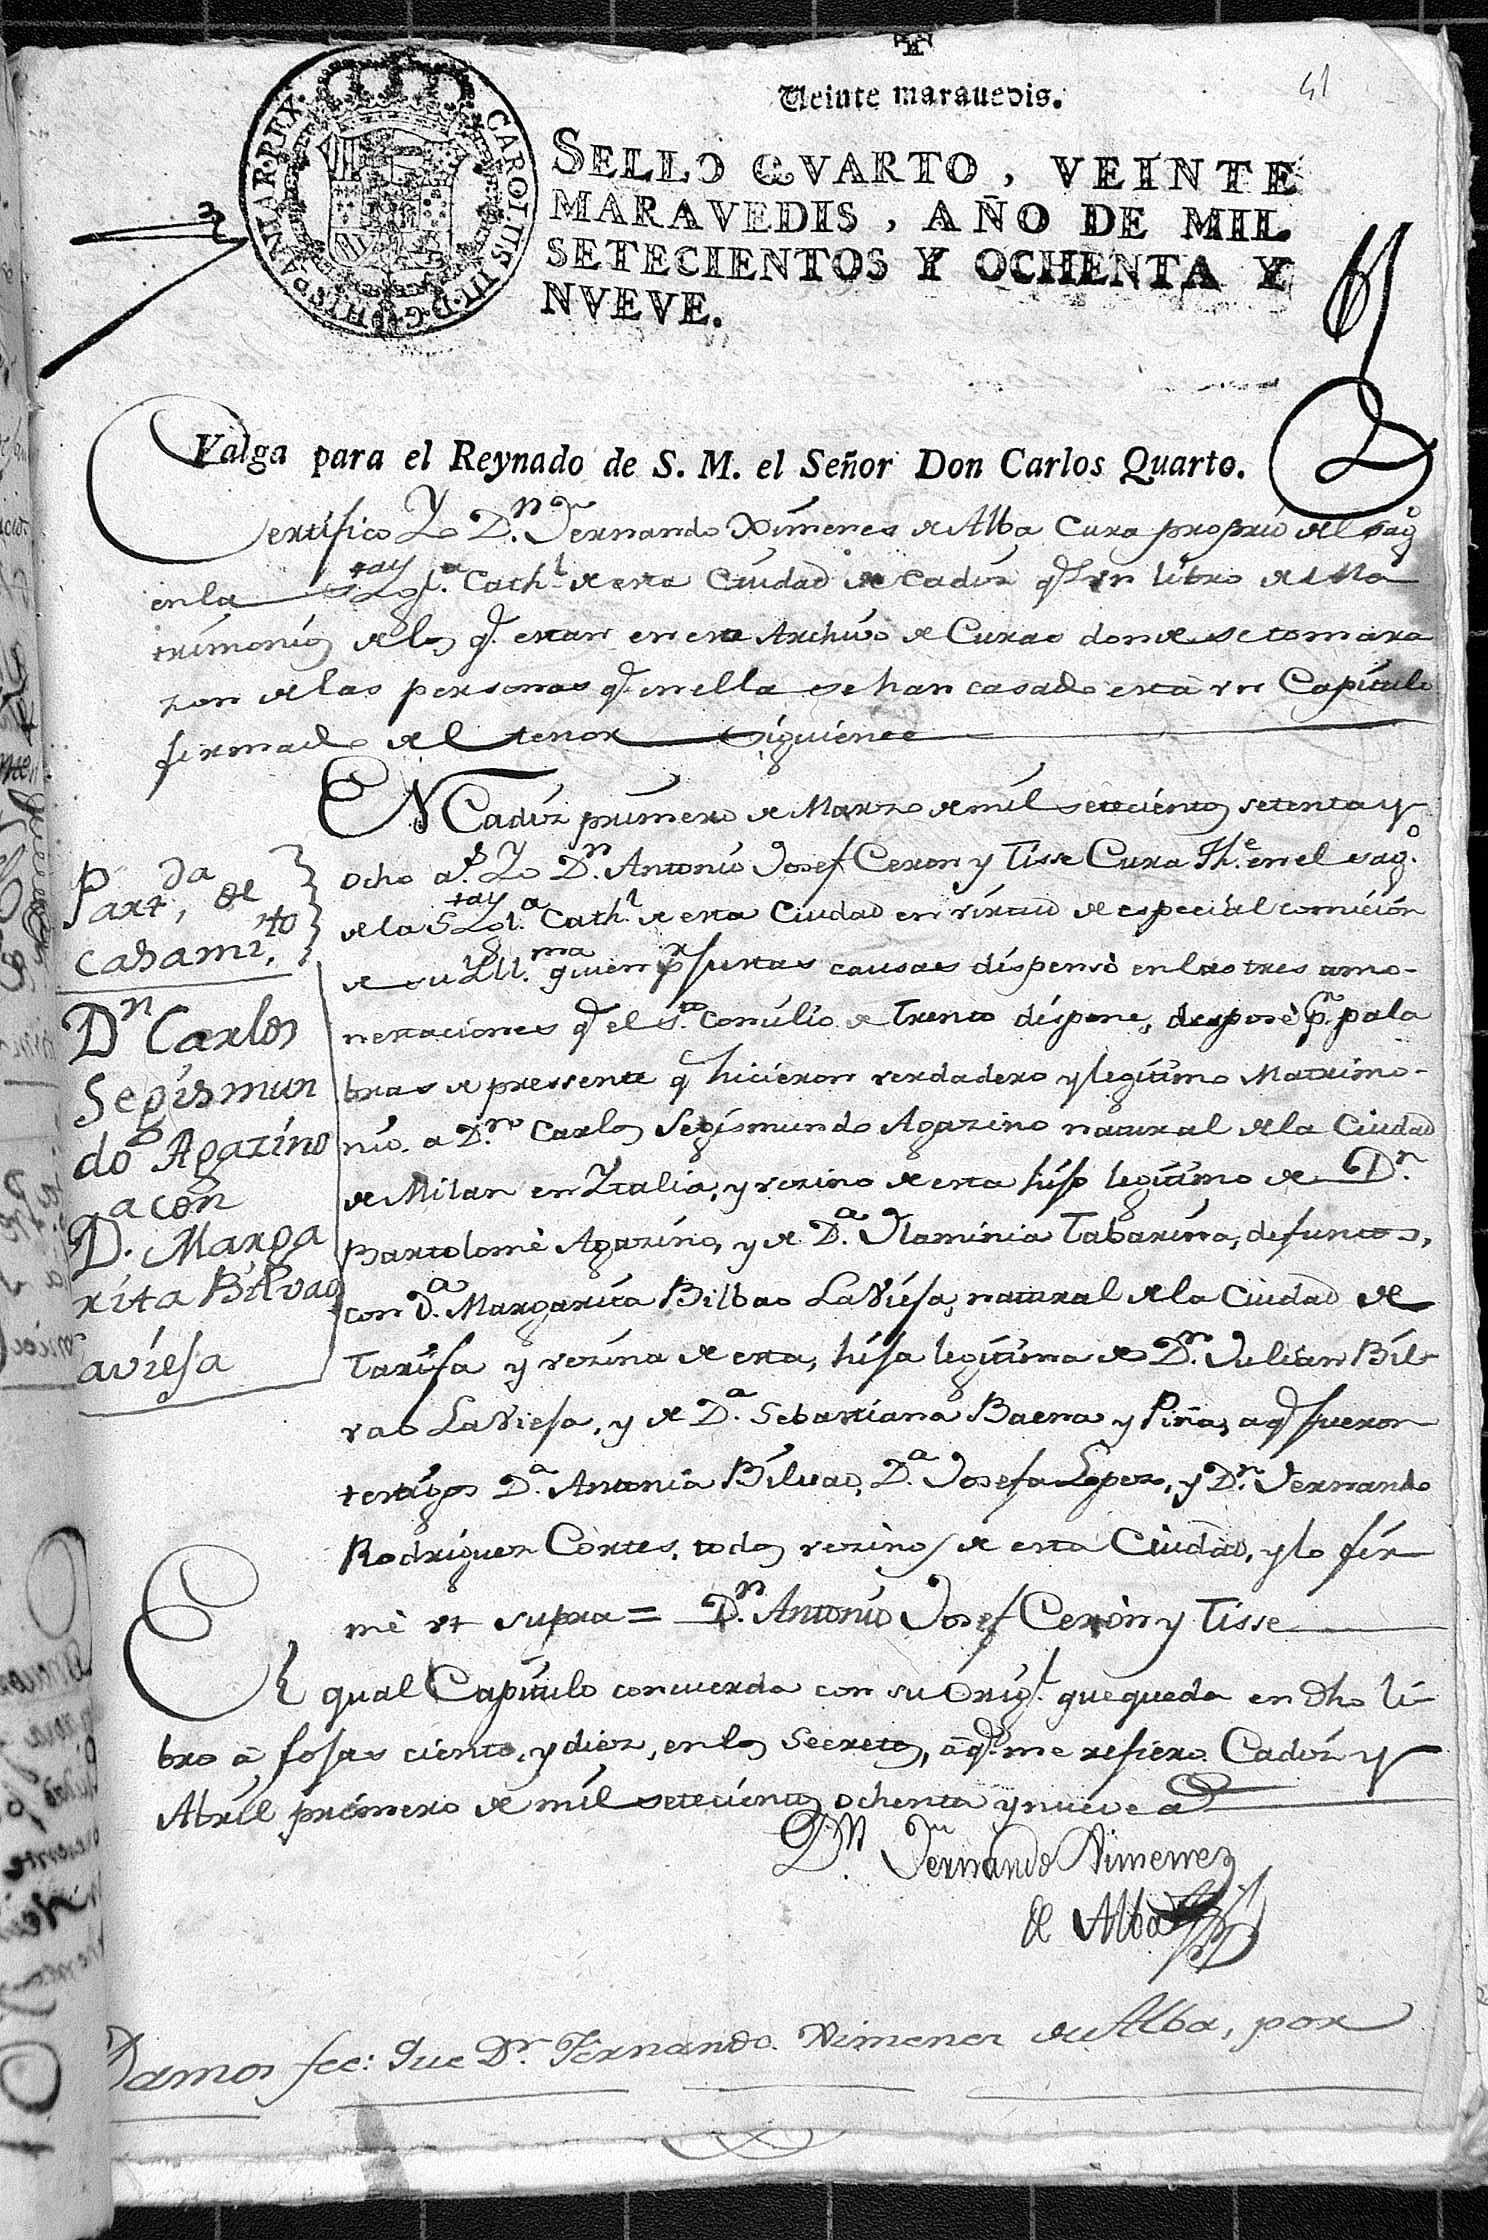 51
Veinte maravedis.
CAROLUS III·D·G·HISPANIAR·REX·
SELLO QVARTO, VEINTE
MARAVEDIS, AÑO DE MIL
SETECIENTOS Y OCHENTA Y
NVEVE.
Valga para el Reynado de S. M. el Señor Don Carlos Quarto.
Certifico Yo D.n Fernando Ximenes de Alba Cura proprio del sag.o
en la S.ta Ygl.a Cath.l de esta Ciudad de Cadiz q.e en un libro de Ma
trimonios de los q.e estan en este Archivo de Curas donde se toma ra
zon de las personas q.e en ella se han casado está un Capitulo
firmado del tenor siguiente
Part.da de
casami.to
D.n Carlos
Segismun
do Agazino
con
D.a Marga
rita Bilvao
aviesa
EN Cadiz primero de Marzo de mil setecientos setenta y
ocho a.s Yo D.n Antonio Josef Ceron y Tisse Cura Th.e en el sag.o
de la S.ta Ygl.a Cath.l de esta Ciudad en virtud de especial comicion
de su Ill.ma quien p.r justas causas dispensó en las tres amo-
nestaciones q.e el S.to Consilio de Trento dispone, desposé p.r pala
bras de pressente q.e hicieron verdadero y legitimo Matrimo-
nio a D.n Carlos Segismundo Agazino natural de la Ciudad
de Milan en Ytalia, y vezino de esta hijo legitimo de D.n
Bartolomé Agazino, y de D.a Flaminia Tabarina, defuntos,
con D.a Margarita Bilbao LaViesa, natural de la Ciudad de
Tarifa y vezina de esta, hija legitima de D.n Julian Bil-
vao LaViesa, y de D.a Sebastiana Baena y Piña, a q.e fueron
testigos D.a Antonia Bilvao, D.a Josefa Lopez, y D.n Fernando
Rodriguez Cortes, todos vezinos de esta Ciudad, y lo fir
mé ut supra = D.n Antonio Josef Cerón y Tisse
El qual Capitulo concuerda con su Orig.l que queda en dho li-
bro a fojas ciento, y diez, en los Secretos, a q.e me refiero Cadiz y
Abril primero de mil setecientos ochenta y nueve a.s
D.n Fernando Ximenez
de Alba
Damos fee: Que D.n Fernando Ximenez de Alba, por